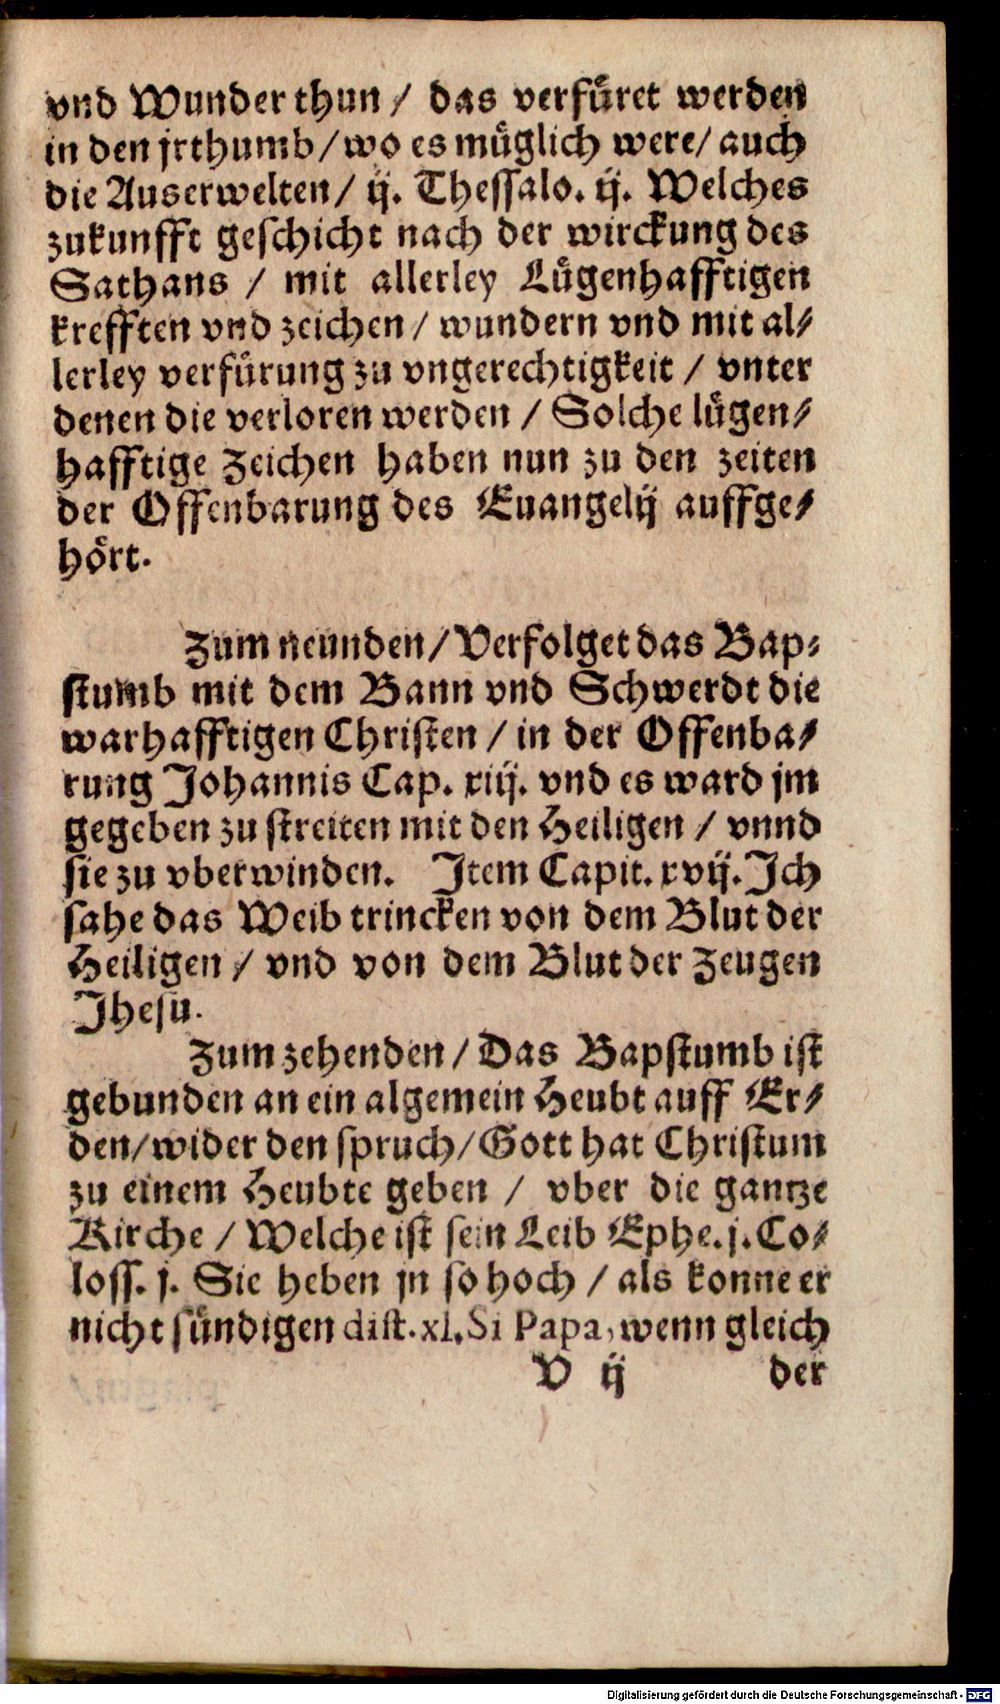 vnd Wunder thun / das verfüret werden
in den jrthumb / wo es müglich were / auch
die Auserwelten / ij. Thessalo. ij. Welches
zukunfft geschicht nach der wirckung des
Sathans / mit allerley Lügenhafftigen
krefften vnd zeichen / wundern vnd mit al⸗
lerley verfürung zu vngerechtigkeit / vnter
denen die verloren werden / Solche lügen⸗
hafftige Zeichen haben nun zu den zeiten
der Offenbarung des Euangelij auffge⸗
hört.
Zum neunden / Verfolget das Bap⸗
stumb mit dem Bann vnd Schwerdt die
warhafftigen Christen / in der Offenba⸗
rung Johannis Cap. xiij. vnd es ward jm
gegeben zu streiten mit den Heiligen / vnnd
sie zu vberwinden. Item Capit. xvij. Ich
sahe das Weib trincken von dem Blut der
Heiligen / vnd von dem Blut der Zeugen
Jhesu.
Zum zehenden / Das Bapstumb ist
gebunden an ein algemein Heubt auff Er⸗
den / wider den spruch / Gott hat Christum
zu einem Heubte geben / vber die gantze
Kirche / Welche ist sein Leib Ephe. j. Co⸗
loss. j. Sie heben jn so hoch / als konne er
nicht sündigen dist. xl. Si Papa, wenn gleich
V ij der
Digitalisierung gefördert durch die Deutsche Forschungsgemeinschaft - DFG